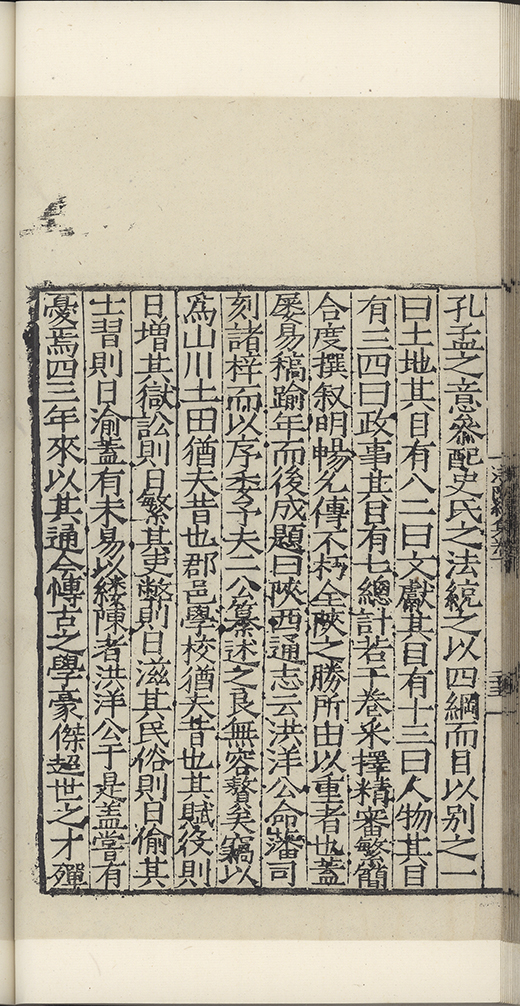 孔孟之意叅配史氏之法統之以四綱而目以別之一
曰土地其目有八二曰文獻其目有十三曰人物其目
有三四曰政事其目有七總計若干卷采擇精審繁簡
合度撰叙明暢允傳不朽全陜之勝所由以重者也蓋
屡易稿踰年而後成題曰陜西通志云洪洋公命藩司
刻諸梓而以序委予夫二公纂述之良無容贅矣竊以
爲山川土田猶夫昔也郡邑學校猶夫昔也其賦役則
日增其獄訟則日繁其吏弊則日滋其民俗則日偷其
士習則日渝蓋有未易以縷陳者洪洋公于是蓋嘗有
憂焉四三年來以其通今慱古之學豪傑超世之才殫